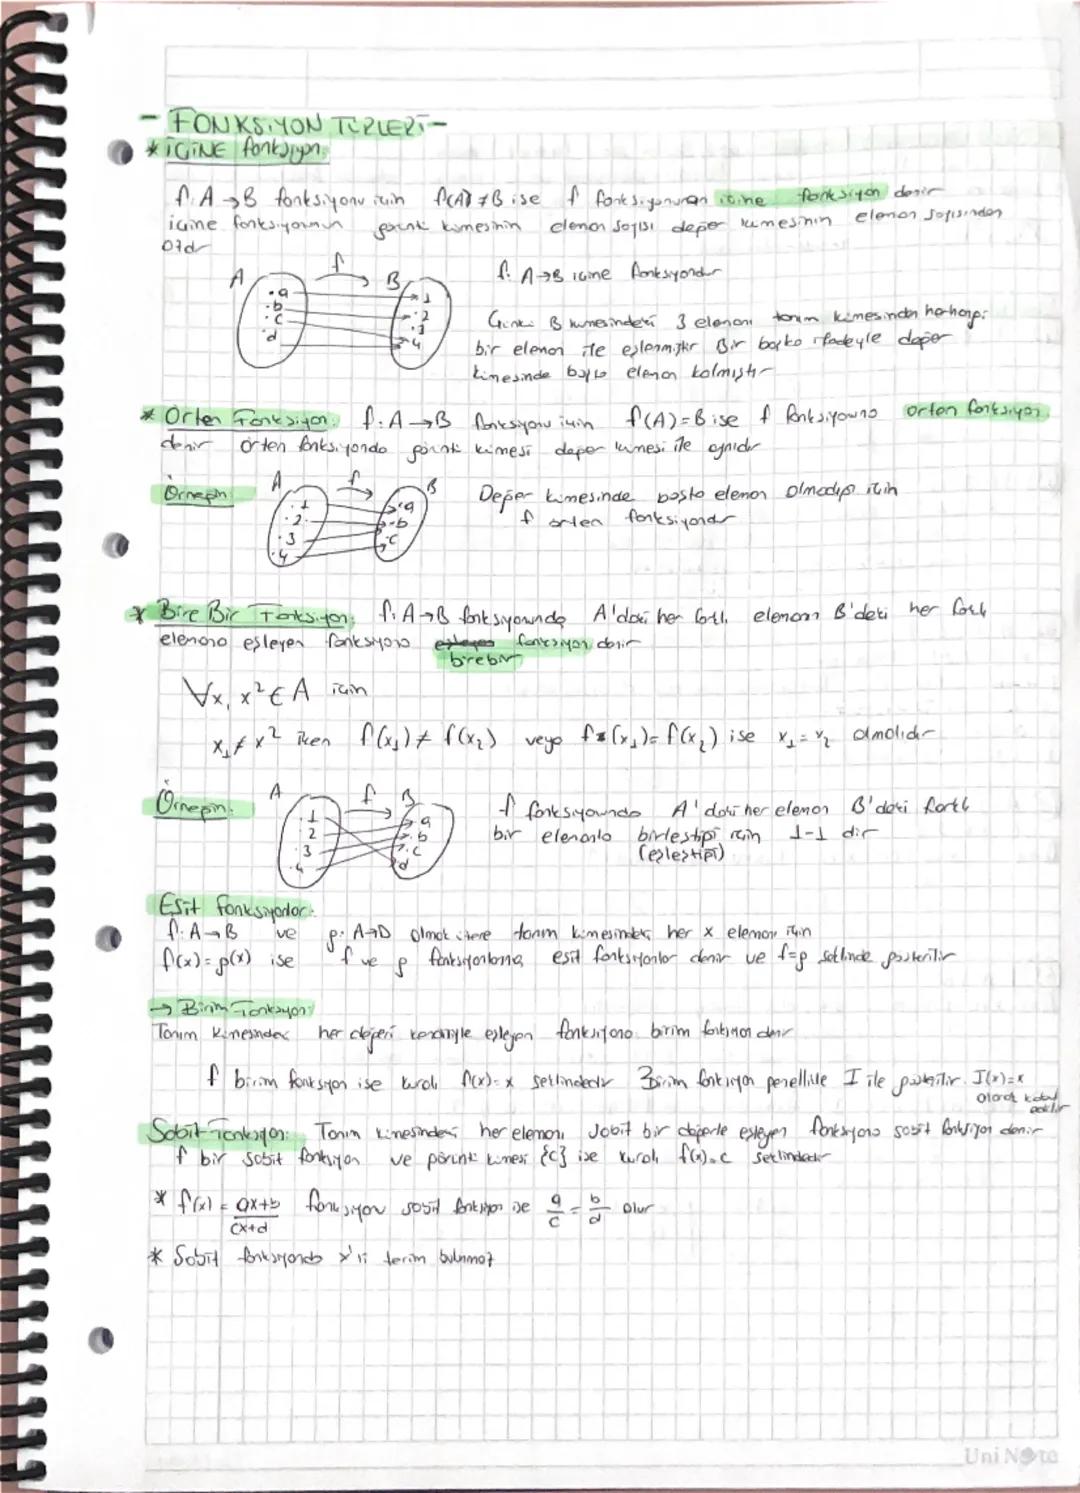 - FONKSİYON TÜRLERİ -
* İÇİNE fonksiyon:
f: A → B fonksiyonu için f(A) ≠ B ise f fonksiyonuna içine fonksiyon denir
içine fonksiyonun görüntü kümesinin eleman sayısı değer kümesinin eleman sayısından
A f B
.a .b .c d
1 2 3 4
f: A→B içine fonksiyondur
Çünkü B kümesindeki 3 elemanı tanım kümesinden herhangi
bir eleman ile eşlenmiştir Bir başka ifadeyle değer
kümesinde boşta eleman kalmıştır
* Örten Fonksiyon: f: A → B fonksiyonu için f(A) = B ise f fonksiyonuna örten fonksiyon
denir örten fonksiyonda görüntü kümesi değer kümesi ile aynıdır
Örneğin: A f B
1 2 3 4
a b c
Değer kümesinde boşta eleman olmadığı için
f örten fonksiyondur
* Bire Bir Fonksiyon: f: A→B fonksiyonunda A'daki her farklı elemanı B'deki her farklı
elemana eşleyen fonksiyona fonksiyon denir
birebir
∀x, x² ∈ A için
x₁ ≠ x² iken f(x₁) ≠ f(x₂) veya f(x₁) = f(x₂) ise x₁ = x₂ olmalıdır
Örneğin: A f B
1 2 3 4
a b c d
f fonksiyonunda A'daki her eleman B'deki farklı
bir elemanla birleştiği için 1-1 dir
(eşleştiği)
Eşit fonksiyonlar:
f: A→B ve g: A→D olmak üzere tanım kümesindeki her x elemanı için
f(x) = g(x) ise f ve g fonksiyonlarına eşit fonksiyonlar denir ve f=g şeklinde gösterilir
→ Birim Fonksiyon:
Tanım kümesindeki her değeri kendisiyle eşleyen fonksiyona birim fonksiyon denir
f birim fonksiyon ise kuralı f(x) = x şeklindedir Birim fonksiyon genellikle I ile gösterilir. I(x)=x
olarak kabul
edilir
Sabit Fonksiyon: Tanım kümesindeki her elemanı sabit bir değerle eşleyen fonksiyona sabit fonksiyon denir
f bir sabit fonksiyon ve görüntü kümesi {c} ise kuralı f(x)=c şeklindedir
* f(x) = ax+b / cx+d fonksiyonu sabit fonksiyon ise a/c = b/d olur
* Sabit fonksiyonda x'li terim bulunmaz
Uni Note